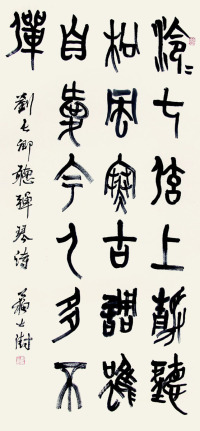 泠〻七弦上靜聽
松風寒古調雖
自愛今人多不
彈
劉長卿聽彈琴詩 蘇士澍